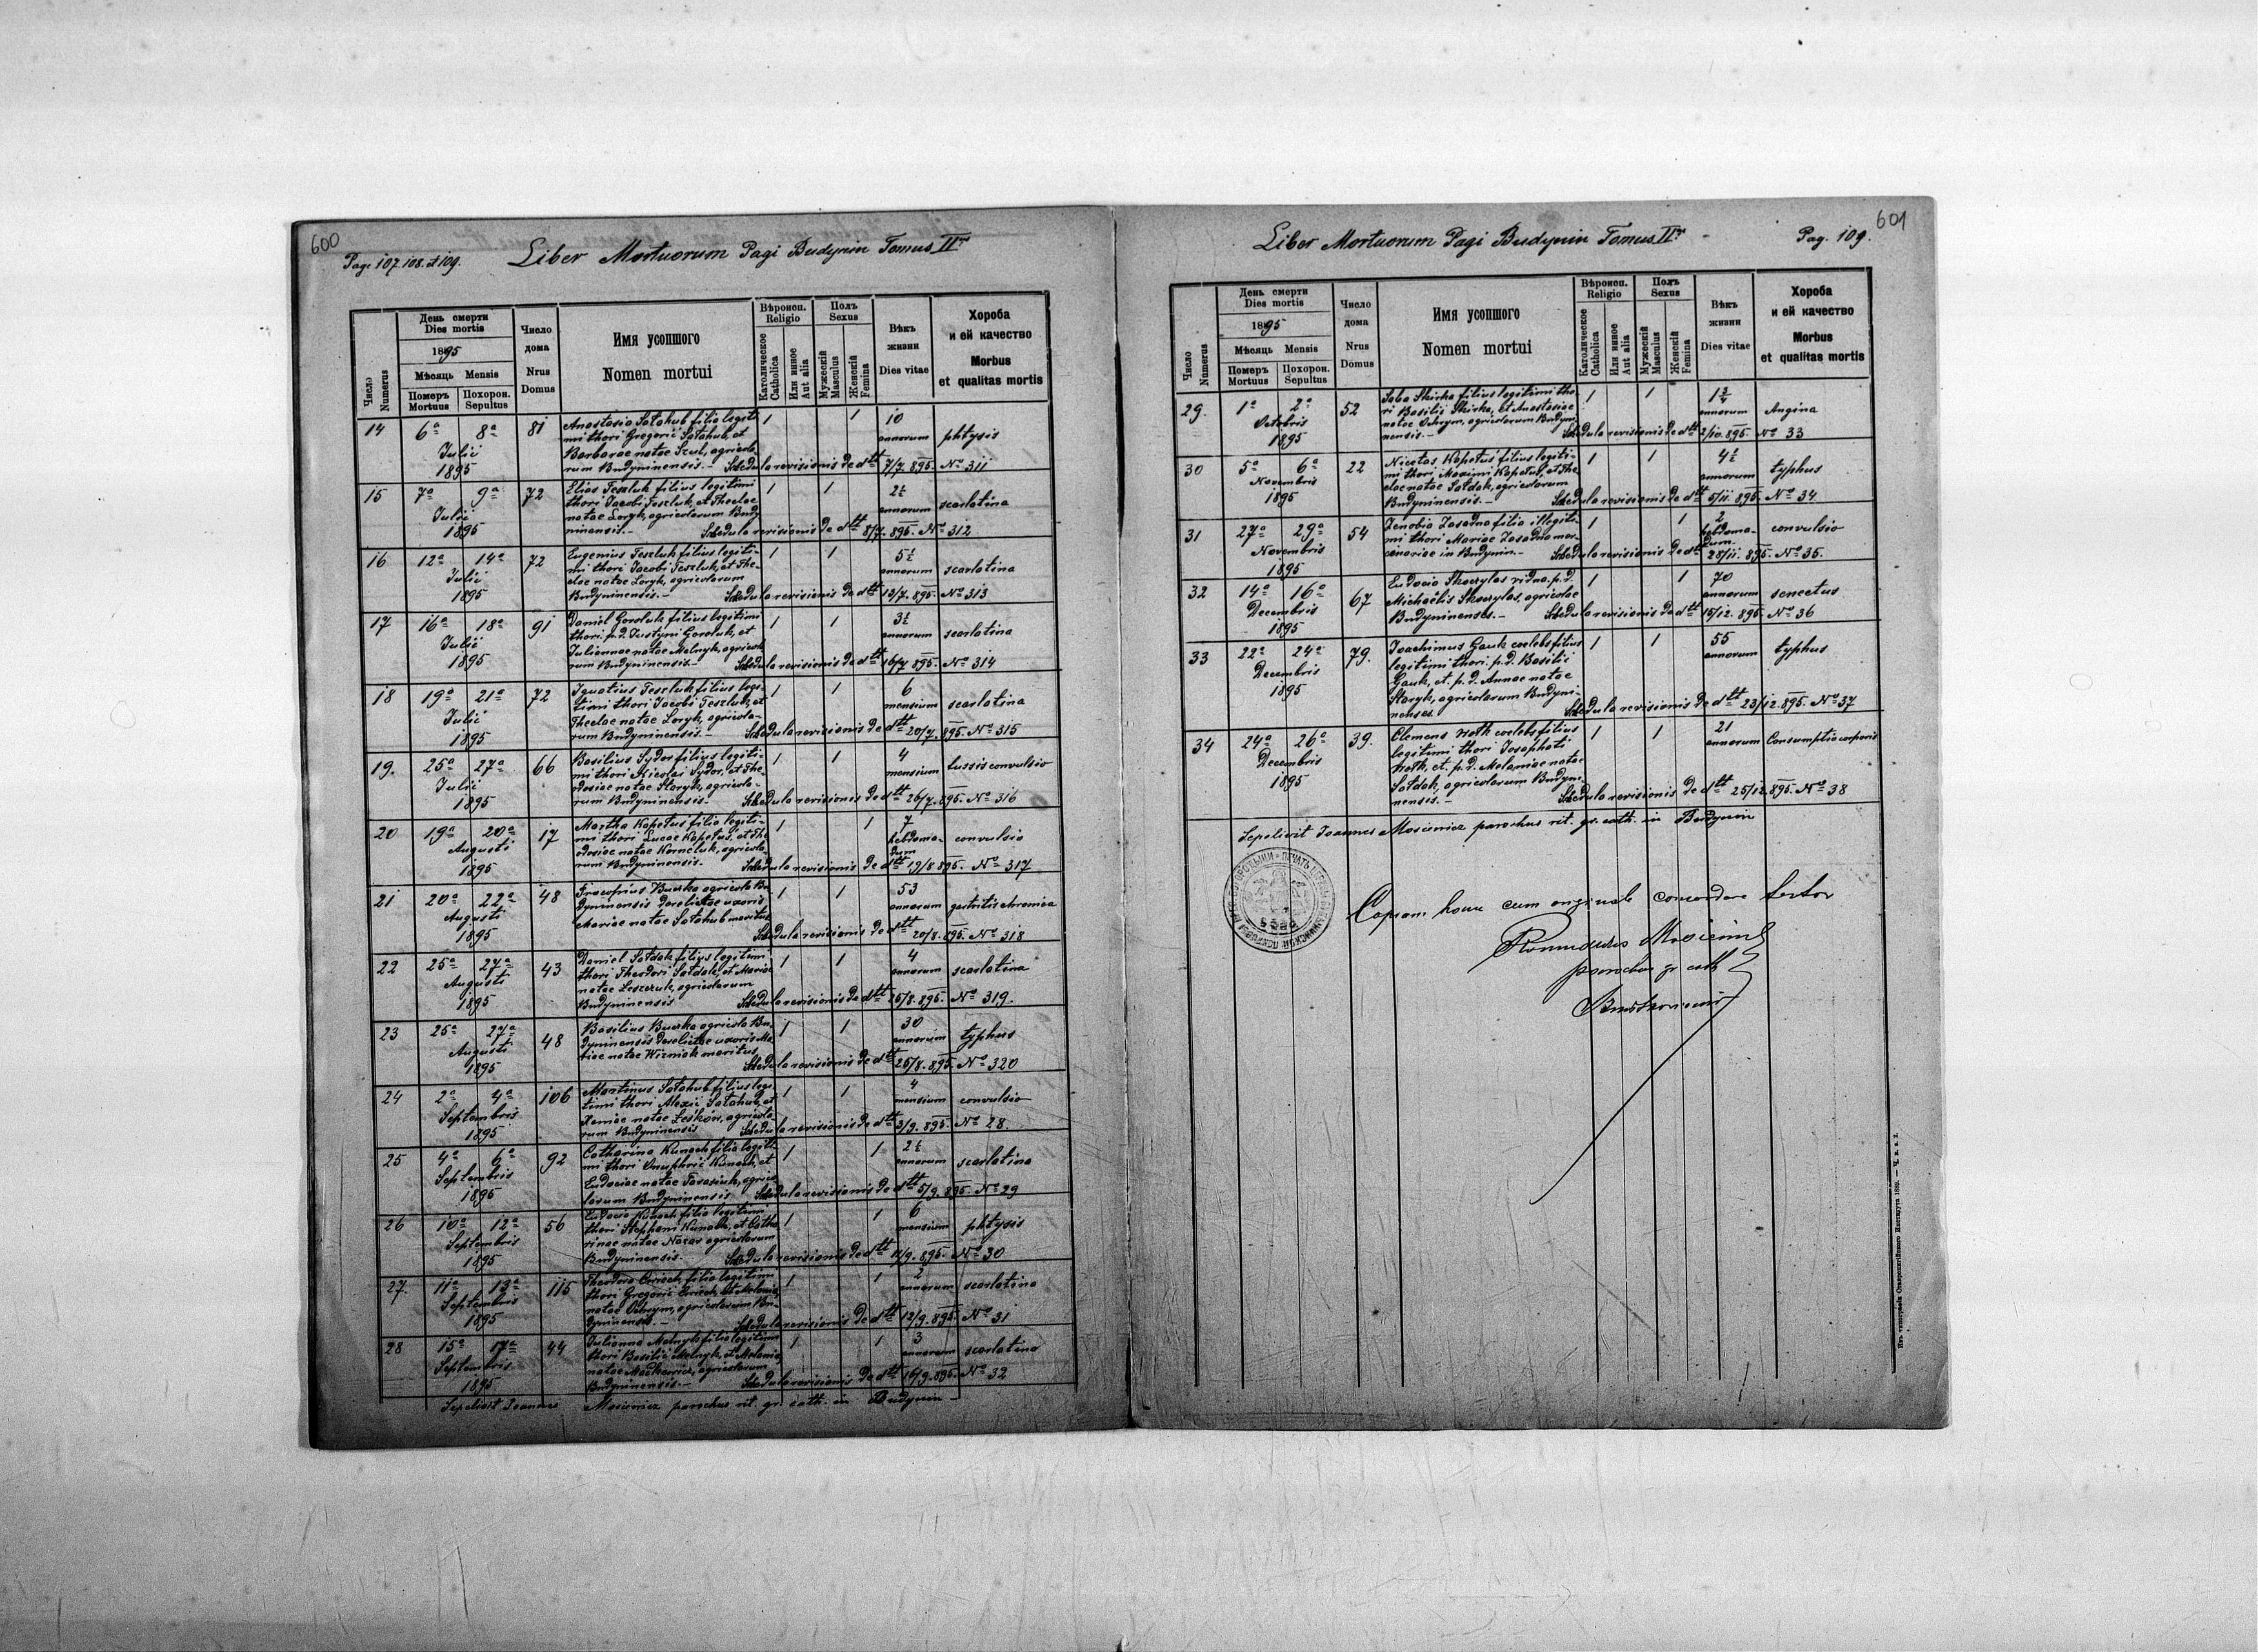 600
Pag. 107. 108. et 109. Liber Mortuorum Pagi Budynin Tomus II
Число Numerus
День смерти
Dies mortis
1895
Мѣсяць Mensis
Померъ Mortuus
Похорон. Sepultus
Число дома
Nrus Domus
Имя усопшого
Nomen mortui
Вѣроисп.
Religio
Католическое Catholica
Или инное Aut alia
Полъ
Sexus
Мужескій Masculus
Женскій Femina
Вѣкъ жизни
Dies vitae
Хороба
и ей качество
Morbus
et qualitas mortis
14 6a 8a Julii 1895 81
Anastasia Sałahub filia legiti-
mi thori Gregorii Sałahub, et
Barbarae natae Szul, agricola-
rum Budyninensis.- Schedula revisionis de dtt 7/7. 895. No 311
1 1 10 annorum phtysis
15 7a 9a Julii 1895 72
Elias Teszluk filius legitimi
thori Jacobi Teszluk, et Theclae
natae Loryk, agricolarum Budy-
ninensis.- Schedula revisionis de dtt 8/7. 895. No 312
1 1 2½ annorum scarlatina
16 12a 14a Julii 1895 72
Eugenius Teszluk filius legiti-
mi thori Jacobi Teszluk, et The-
clae natae Loryk, agricolarum
Budyninensis.- Schedula revisionis de dtt 13/7. 895. No 313
1 1 5½ annorum scarlatina
17 16a 18a Julii 1895 91
Daniel Goroluk filius legitimi
thori p.d. Justyni Goroluk, et
Juliannae natae Melnyk, agricola-
rum Budyninensis.- Schedula revisionis de dtt 16/7 895. No 314
1 1 3½ annorum scarlatina
18 19a 21a Julii 1895 72
Ignatius Teszluk filius legi-
timi thori Jacobi Teszluk, et
Theclae natae Loryk, agricola-
rum Budyninensis.- Schedula revisionis de dtt 20/7. 895. No 315
1 1 6 mensium scarlatina
19. 25a 27a Julii 1895 66
Basilius Sydor filius legiti-
mi thori Nicolai Sydor, et The-
dosiae natae Staryk, agricola-
rum Budyninensis.- Schedula revisionis de dtt 26/7. 895. No 316
1 1 4 mensium tussis convulsio
20 19a 20a Augusti 1895 17
Martha Kapetus filia legiti-
mi thori Lucae Kapetus, et The-
dosiae natae Korneluk, agricola-
rum Budyninensis. Schedula revisionis de dtt 19/8 895. No 317
1 1 7 hebdoma-dum convulsio
21 20a 22a Augusti 1895 48
Buczko agricola Bu-
dyninensis derelictae uxoris
Mariae natae Sałahub maritus
Schedula revisionis de dtt 20/8. 895. No 318
1 1 53 annorum gastritis chronica
22 25a 27a Augusti 1895 43
Daniel Sołdak filius legitimi
thori Theodori Sołdak, et Mariae
natae Leszczuk, agricolarum
Budyninensis Schedula revisionis de dtt 25/8. 895. No 319.
1 1 4 annorum scarlatina
23 25a 27a Augusti 1895 48
Basilius Buczko agricola Bu-
dyninensis derelictae uxoris Ma-
riae natae Wizniak maritus
Schedula revisionis de dtt 26/8. 895. No 320
1 1 30 annorum typhus
24 2a 4a Septembris 1895 106
Martinus Sałahub filius legi-
timi thori Alexii Sałahub, et
Xeniae natae Leśków, agricola-
rum Budyninensis Schedula revisionis de dtt 3/9. 895. No 28.
1 1 4 mensium convulsio
25 4a 6a Septembris 1895 92
Catharina Kunach filia legiti-
mi thori Onuphrii Kunach, et
Eudociae natae Tarasiuk, agrico-
larum Budyninensis Schedula revisionis de dtt 5/9. 895. No 29
1 1 2½ annorum scarlatina
26 10a 12a Septembris 1895 56
Eudocia Kunach filia legitimi
thori Stephani Kunach, et Catha-
rinae natae Nazar agricolarum
Budyninensis. Schedula revisionis de dtt 11/9. 895. No 30
1 1 6 mensium phtysis
27. 11a 13a Septembris 1895 115
Theodora filia legitimi
thori Gregorii et Melaniae
natae Ochrym, agricolarum Bu-
dyninensis.- Schedula revisionis de dtt 12/9. 895. No 31
1 1 2 annorum scarlatina
28 15a 17a Septembris 1895 44
Julianna Melnyk filia legitimi
thori Basilii Melnyk, et Melaniae
natae Mackewicz, agricolarum
Budyninensis.- Schedula revisionis de dtt 16/9. 895. No 32
1 1 3 annorum scarlatina
Sepelivit Joannes Mosiewicz parochus rit. gr. cath. in Budynin -
601
Liber Mortuorum Pagi Budynin Tomus II - Pag. 109.
Число Numerus
День смерти
Dies mortis
1895
Мѣсяць Mensis
Померъ Mortuus
Похорон. Sepultus
Число дома
Nrus Domus
Имя усопшого
Nomen mortui
Вѣроисп.
Religio
Католическое Catholica
Или инное Aut alia
Полъ
Sexus
Мужескій Masculus
Женскій Femina
Вѣкъ жизни
Dies vitae
Хороба
и ей качество
Morbus
et qualitas mortis
29. 1a 2a Octobris 1895 52
Saba Skirka filius legitimi tho-
ri Basilii Skirka, et Anastasiae
natae Ochrym, agricolarum Budyni-
nensis.- Schedula revisionis de dtt 2/10. 895. No 33
1 1 annorum Angina
30 5a 6a Novembris 1895 22
Nicetas Kapetus filius legiti-
mi thori Maximi Kapetus, et The-
clae natae Sołdak, agricolarum
Budyninensis.- Schedula revisionis de dtt 5/11. 895. No 34
1 1 4½ annorum typhus
31 27a 29a Novembris 1895 54
Zenobia Zasadna filia illegiti-
mi thori Mariae Zasadna mer-
cenariae in Budynin.- Schedula revisionis de dtt 28/11. 895. No 35.
1 1 2 hebdoma-dum. convulsio
32 14a 16a Decembris 1895 67
Eudocia Skoczylas vidua p.d.
Michaëlis Skoczylas, agricolae
Budyninensis.- Schedula revisionis de dtt 15/12. 895. No 36
1 1 70 annorum senectus
33 22a 24a Decembris 1895 79.
Joachimus Gauk coelebs filius
legitimi thori p.d. Basilii
Gauk, et p.d. Annae natae
Staryk, agricolarum Budyni-
nensis Schedula revisionis de dtt 23/12. 895. No 37
1 1 55 annorum typhus
34 24a 26a Decembris 1895 39.
Clemens coelebs filius
legitimi thori Josaphati
et p.d. Melaniae natae
Sołdak, agricolarum Budyni-
nensis.- Schedula revisionis de dtt 25/12. 895. No 38
1 1 21 annorum Consumptio corporis
Sepelivit Joannes Mosiewicz parochus rit. gr. cath. in Budynin
Copiam hanc cum originale concordare testor
parochus gr cath